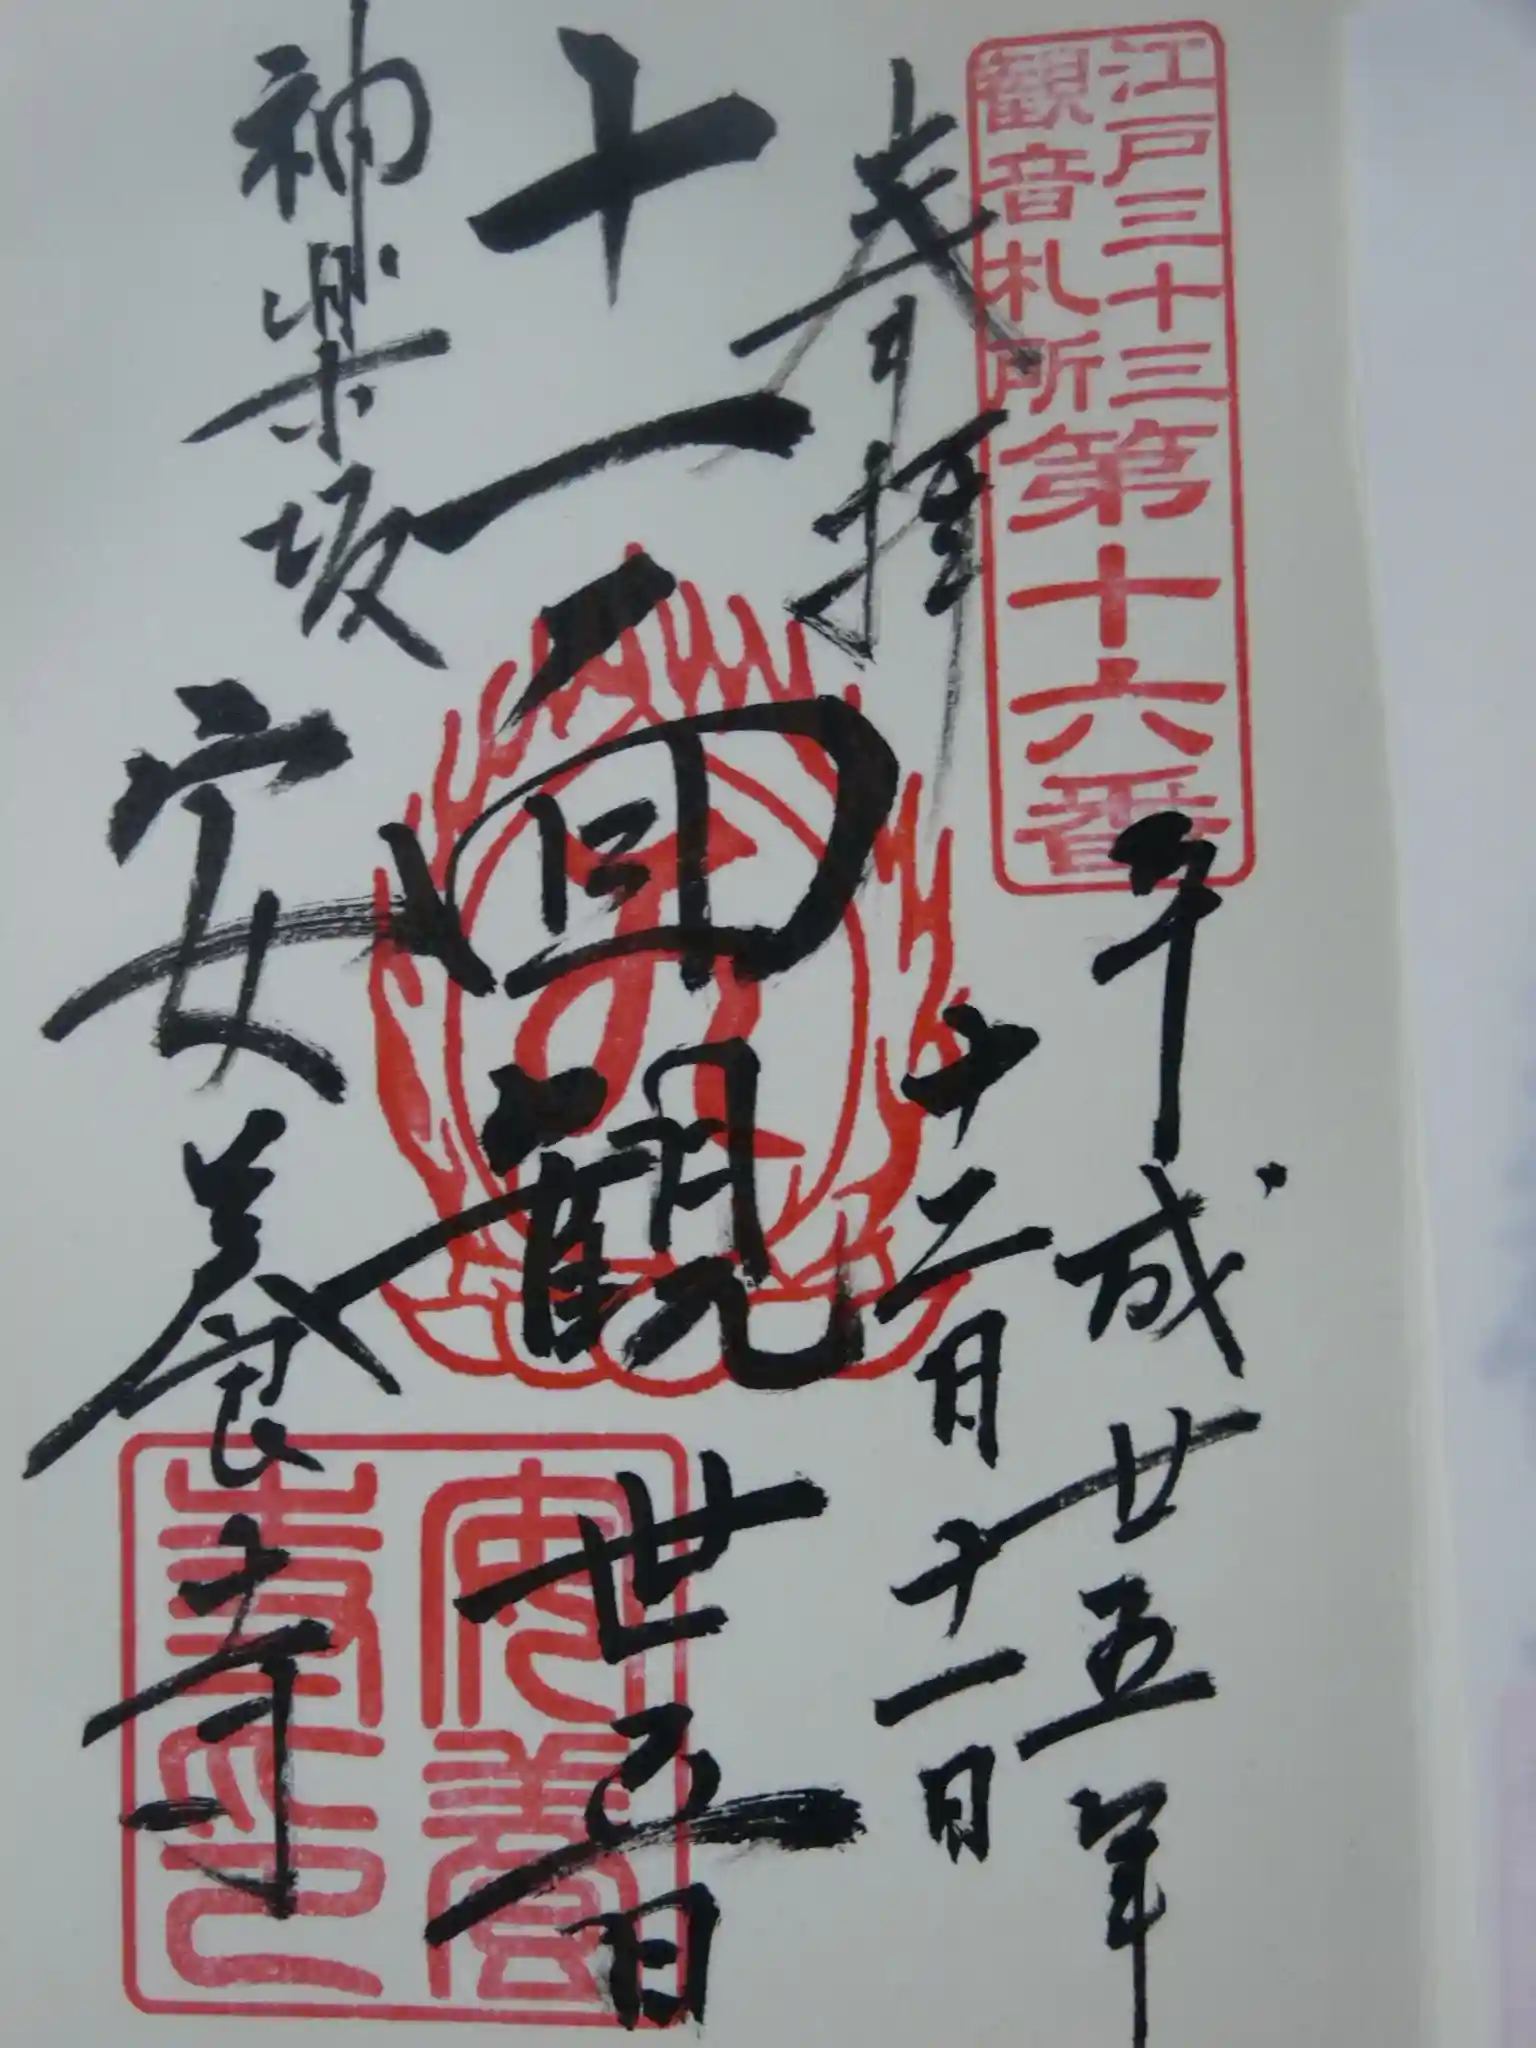 江戸三十三
観音札所
第十六番
奉拝
平成廿五年
十二月十一日
十一面観世音
神楽坂
安養寺
安養
寺印